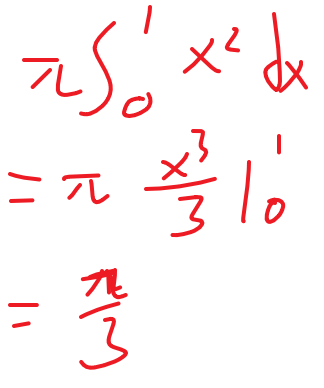 π∫₀¹ x² dx
= π x³/3 |₀¹
= π/3